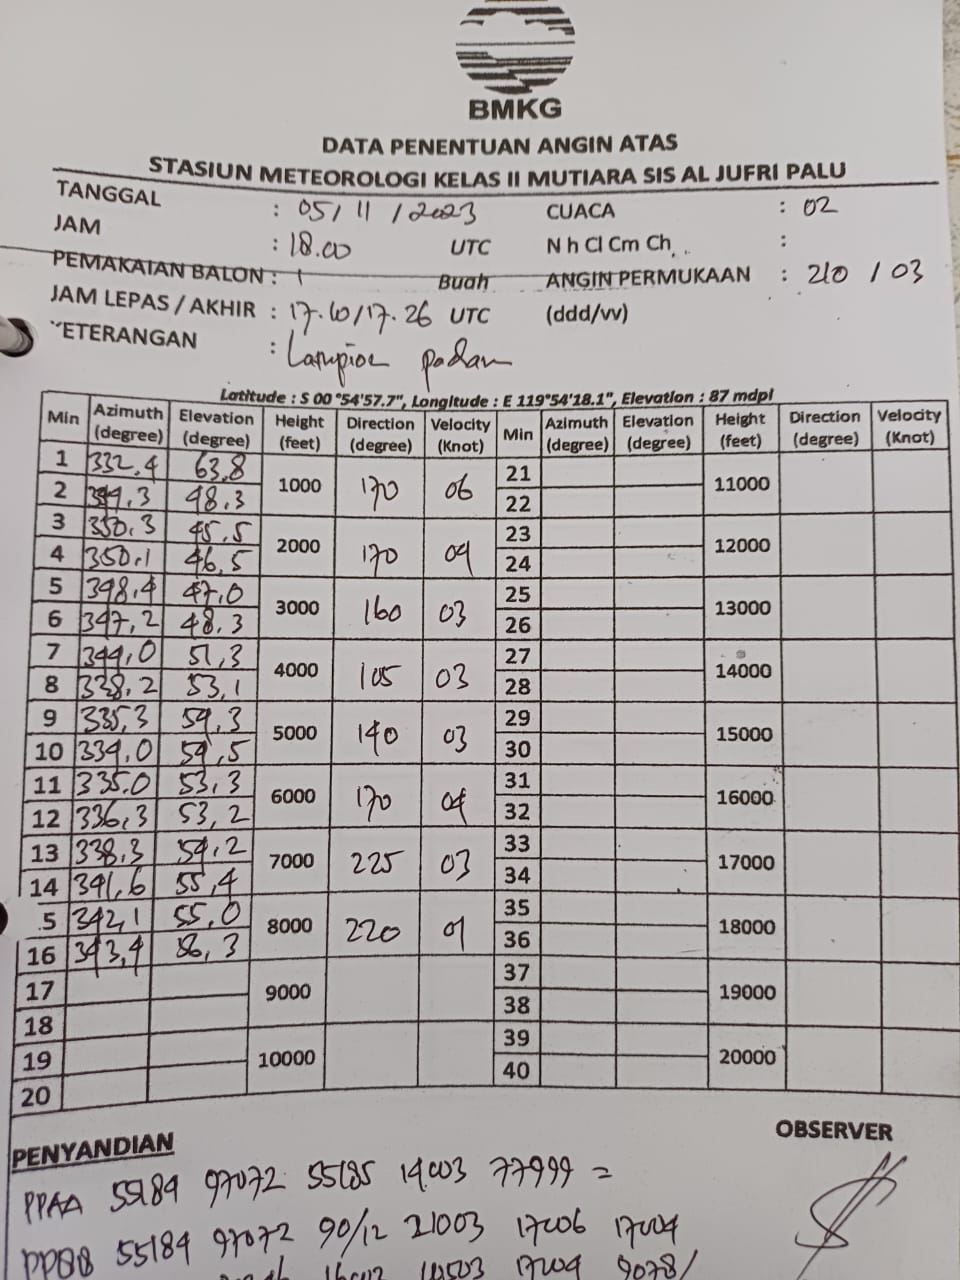 BMKG
DATA PENENTUAN ANGIN ATAS
STASIUN METEOROLOGI KELAS II MUTIARA SIS AL JUFRI PALU
TANGGAL : 05/11/2023 CUACA : 02
JAM : 18.00 UTC N h Cl Cm Ch :
PEMAKAIAN BALON : 1 Buah ANGIN PERMUKAAN : 210 / 03
JAM LEPAS / AKHIR : 17.10/17.26 UTC (ddd/vv)
KETERANGAN : Lampion padam
Latitude : S 00°54'57.7", Longitude : E 119°54'18.1", Elevation : 87 mdpl
Min Azimuth (degree) Elevation (degree) Height (feet) Direction (degree) Velocity (Knot) Min Azimuth (degree) Elevation (degree) Height (feet) Direction (degree) Velocity (Knot)
1 332,4 63,8 1000 170 06 21 11000
2 344,3 48,3 22
3 350,3 45,5 2000 170 04 23 12000
4 350,1 46,5 24
5 348,4 47,0 3000 160 03 25 13000
6 347,2 48,3 26
7 344,0 51,3 4000 105 03 27 14000
8 338,2 53,1 28
9 335,3 54,3 5000 140 03 29 15000
10 334,0 54,5 30
11 335.0 53,3 6000 170 04 31 16000
12 336,3 53,2 32
13 338,3 54,2 7000 225 03 33 17000
14 341,6 55,4 34
5 342,1 55,0 8000 220 01 35 18000
16 343,4 56,3 36
17 9000 37 19000
18 38
19 10000 39 20000
20 40
PENYANDIAN OBSERVER
PPAA 55184 97072 55185 14003 77999 =
PPBB 55184 97072 90/12 21003 17006 17004
16003 10503 17004 9078/